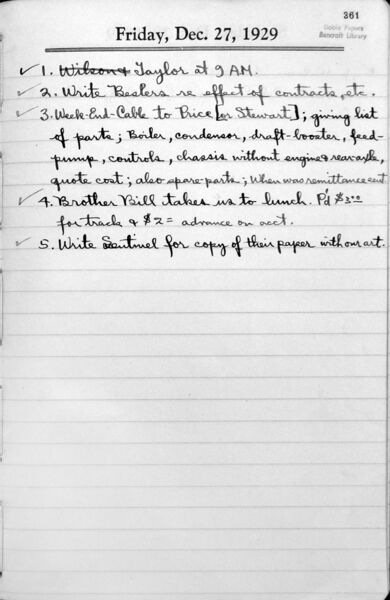 361
Doble Papers
Bancroft Library
Friday, Dec. 27, 1929
✓ 1. Wilson & Taylor at 9 A.M.
✓ 2. Write Beslers re effect of contracts, etc.
✓ 3. Week-End-Cable to Price [or Stewart]; giving list
of parts; Boiler, condensor, draft-booster, feed-
pump, controls, chassis without engine & rear axle,
quote cost; also spare-parts; When was remittance sent
✓ 4. Brother Bill takes us to lunch. Pd $3.00
for track & $2= advance on acct.
✓ 5. Write Sentinel for copy of their paper with our art.